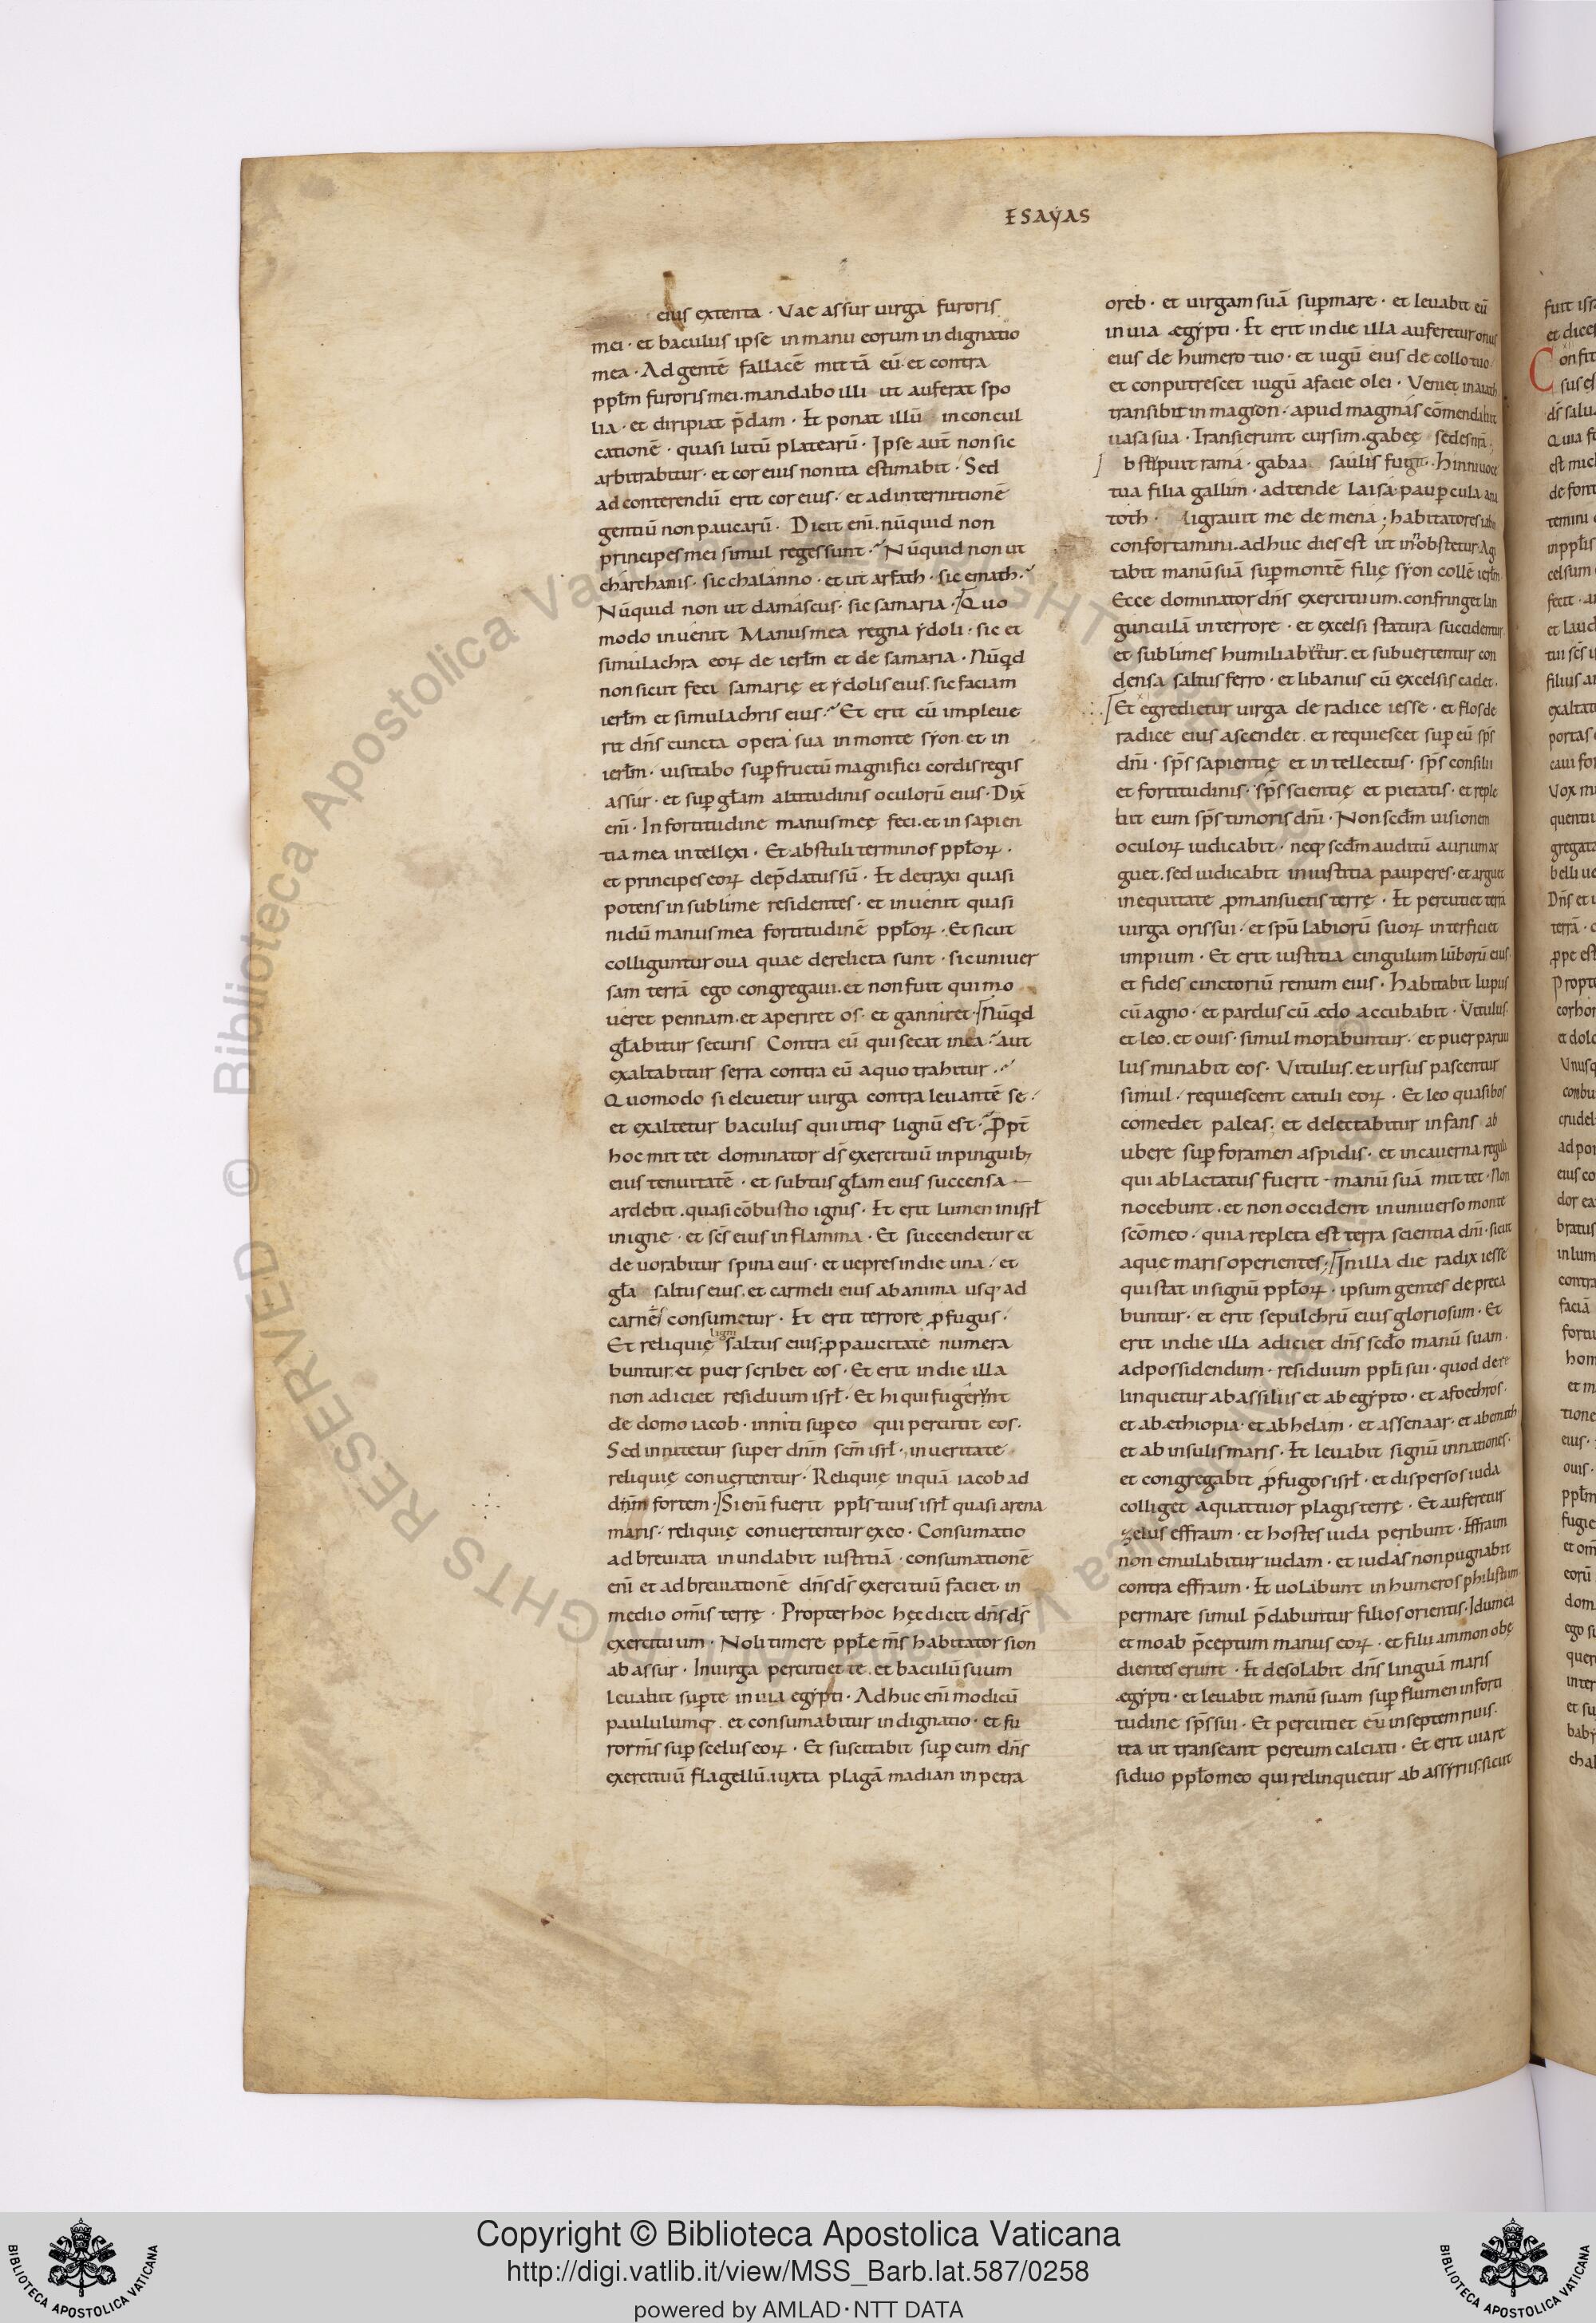 ESAẎAS
eius extenta · Vae assur uirga furoris
mei · et baculus ipse in manu eorum indignatio
mea · Ad gentē fallacē mittā eū · et contra
pplm̄ furoris mei · mandabo illi ut auferat spo
lia · et diripiat p̄dam · Et ponat illū in concul
cationē · quasi lutū platearū · Ipse aut̄ non sic
arbitrabitur · et cor eius non ita estimabit · Sed
ad conterendū erit cor eius · et ad internitionē
gentiū non paucarū · Dicit eni · nūquid non
principes mei simul reges sunt · Nūquid non ut
charchanis · sic chalanno · et ut arfath · sic emath ·
Nūquid non ut damascus · sic samaria · Quo
modo inuenit Manus mea regna ẏdoli · sic et
simulachra eoꝝ de ierlm̄ et de samaria · Nūqd
non sicut feci samarię et ẏdolis eius · sic faciam
ierlm̄ et simulachris eius · Et erit cū impleue
rit dn̄s cuncta opera sua in monte sẏon · et in
ierlm̄ · uisitabo sup fructū magnifici cordis regis
assur · et sup glam̄ altitudinis oculorū eius · Dix̄
eni · In fortitudine manus męę feci · et in sapien
tia mea intellexi · Et abstuli terminos pploꝝ ·
et principes eoꝝ dep̄datus sū · Et detraxi quasi
potens in sublime residentes · et inuenit quasi
nidū manus mea fortitudinē pploꝝ · Et sicut
colliguntur oua quae derelicta sunt · sic uniuer
sam terrā ego congregaui · et non fuit qui mo
ueret pennam · et aperiret os · et ganniret · Nūqd
glabitur securis Contra eū qui secat in ea · aut
exaltabitur serra contra eū a quo trahitur ·
Quomodo si eleuetur uirga contra leuantē se ·
et exaltetur baculus qui utiq lignū est · Ppt̄
hoc mittet dominator ds̄ exercituū in pinguib;
eius tenuitatē · et subtus glam̄ eius succensa
ardebit · quasi cōbustio ignis · Et erit lumen in isrl
in igne · et scs̄ eius in flamma · Et succendetur et
deuorabitur spina eius · et uepres in die una · et
gla saltus eius · et carmeli eius ab anima usq ad
carnē consumetur · Et erit terrore pfugus ·
Et reliquię ligni saltus eius · p paucitate numera
buntur · et puer scribet eos · Et erit in die illa
non adiciet residuum isrl · Et hi qui fugerint
de domo iacob · inniti sup eo qui percutit eos ·
Sed innitetur super dnm̄ scm̄ isrl · in ueritate
reliquię conuertentur · Reliquię inquā iacob ad
dnm̄ fortem · Si eni fuerit ppls̄ tuus isrl quasi arena
maris · reliquię conuertentur ex eo · Consumatio
adbreuiata inundabit iustitiā · consumationē
eni et adbreuiationē dn̄s ds̄ exercituū faciet in
medio om̄is terrę · Propter hoc hęc dicit dn̄s ds̄
exercituum · Noli timere pple ms̄ habitator sion
ab assur · In uirga percutiet te · et baculū suum
leuabit sup te in uia egẏpti · Adhuc eni modicū
paululumq · et consumabitur indignatio · et fu
ror ms̄ sup scelus eoꝝ · Et suscitabit sup eum dn̄s
exercituū flagellū · iuxta plagā madian in petra
oreb · et uirgam suā sup mare · et leuabit eū
in uia ægẏpti · Et erit in die illa auferetur onus
eius de humero tuo · et iugū eius de collo tuo
et conputrescet iugū a facie olei · Veniet in aiath
transibit in magron · apud magmas cōmendabit
uasa sua · Transierunt cursim · gabęę sedes nrā ·
bstipuit rama · gabaa saulis fugit · hinni uoce
tua filia gallim · adtende laisa · paup cula ana
toth · igrauit me demena · habitatores
confortamini · adhuc dies est ut in nobe stetur · Agi
tabit manū suā sup montē filię sẏon collē ierlm̄
Ecce dominator dn̄s exercituum · confringet lan
gunculā in terrore · et excelsi statura succidentur
et sublimes humiliabuntur · et subuertentur con
densa saltus ferro · et libanus cū excelsis cadet ·
Et egredietur uirga de radice iesse · et flos de
radice eius ascendet · et requiescet sup eū sps̄
dn̄i · sps̄ sapientię et intellectus · sps̄ consilii
et fortitudinis · sps̄ scientię et pietatis · et reple
bit eum sps̄ timoris dn̄i · Non scdm̄ uisionem
oculoꝝ iudicabit · neq scdm̄ auditū aurium ar
guet · sed iudicabit in iustitia pauperes · et arguet
in equitate p mansuetis terrę · Et percutiet terrā
uirga oris sui · et spū labiorū suoꝝ interficiet
impium · Et erit iustitia cingulum lūborū eius
et fides cinctoriū renum eius · Habitabit lupus
cū agno · et pardus cū ędo accubabit · Vitulus ·
et leo · et ouis · simul morabuntur · et puer paruu
lus minabit eos · Vitulus · et ursus pascentur
simul · requiescent catuli eoꝝ · Et leo quasi bos
comedet paleas · et delectabitur infans ab
ubere sup foramen aspidis · et in cauerna reguli
qui ablactatus fuerit · manū suā mittet · Non
nocebunt · et non occident in uniuerso monte
scō meo · quia repleta est terra scientia dn̄i · sicut
aquę maris operientes; In illa die radix iesse
qui stat in signū pploꝝ · ipsum gentes depreca
buntur · et erit sepulchrū eius gloriosum · Et
erit in die illa adiciet dn̄s scdo manū suam ·
ad possidendum · residuum ppli sui · quod dere
linquetur ab assiliis et ab egẏpto · et a foethros ·
et ab ęthiopia · et ab helam · et a ssenaar · et ab emath
et ab insulis maris · Et leuabit signū in nationes ·
et congregabit pfugos isrl · et dispersos iuda
colliget a quattuor plagis terrę · Et auferetur
zelus effraim · et hostes iuda peribunt · Effraim
non emulabitur iudam · et iudas non pugnabit
contra effraim · Et uolabunt in humeros philistiim
per mare simul p̄dabuntur filios orientis · Idumea
et moab p̄ceptum manus eoꝝ · et filii ammon obę
dientes erunt · Et desolabit dn̄s linguā maris
ægẏpti · et leuabit manū suam sup flumen in forti
tudine sps̄ sui · Et percutiet eū in septem riuis ·
ita ut transeant per eum calciati · Et erit uia re
siduo pplo meo qui relinquetur ab assẏriis · sicut
fuit isr
et dices
Confit
sus es
ds̄ salu
Quia f
est mic
de font
temini
in pplis
celsum
fecit · an
et laud
tui scs̄ i
filius a
exaltat
portas
caui fo
Vox m
quentiu
gregata
belli ue
Dn̄s et
terrā ·
ppe est
Propte
cor ho
et dolo
Vnusq
conbu
crudel
ad po
eius co
dor ea
bratus
in lum
contra
faciā
fortu
hom
et m
tione
eius ·
ouis ·
pplm̄
fugie
et om̄
eorū
dom
ego su
quer
inter
et su
babẏ
chal
Copyright © Biblioteca Apostolica Vaticana
http://digi.vatlib.it/view/MSS_Barb.lat.587/0258
powered by AMLAD·NTT DATA
BIBLIOTECA APOSTOLICA VATICANA
BIBLIOTECA APOSTOLICA VATICANA
© Biblioteca Apostolica Vaticana ALL RIGHTS RESERVED